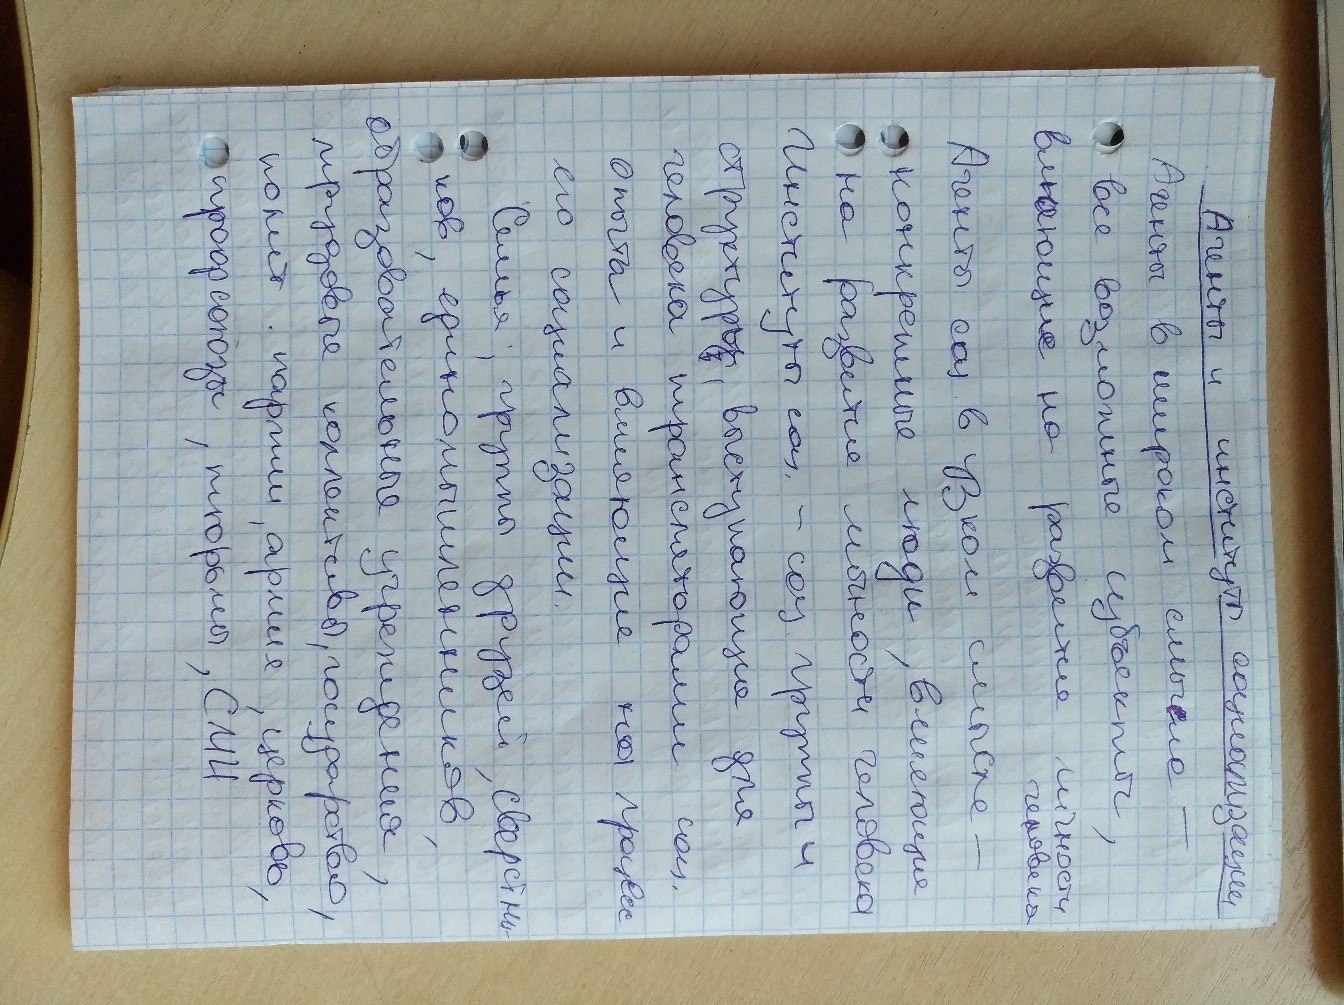 Агенты и институты социализации
Агенты в широком смысле —
все возможные субъекты,
влияющие на развитие личности
человека
Агенты соц. в узком смысле —
конкретные люди, влияющие
на развитие личности человека
Институты соц. – соц. группы и
структуры, выступающие для
человека трансляторами соц.
опыта и влияющие на процесс
его социализации.
Семья, группы друзей, сверстни-
ков, единомышленников,
образовательные учреждения,
трудовые коллективы, государство,
полит. партии, армия, церковь,
профсоюзы, тюрьмы, СМИ